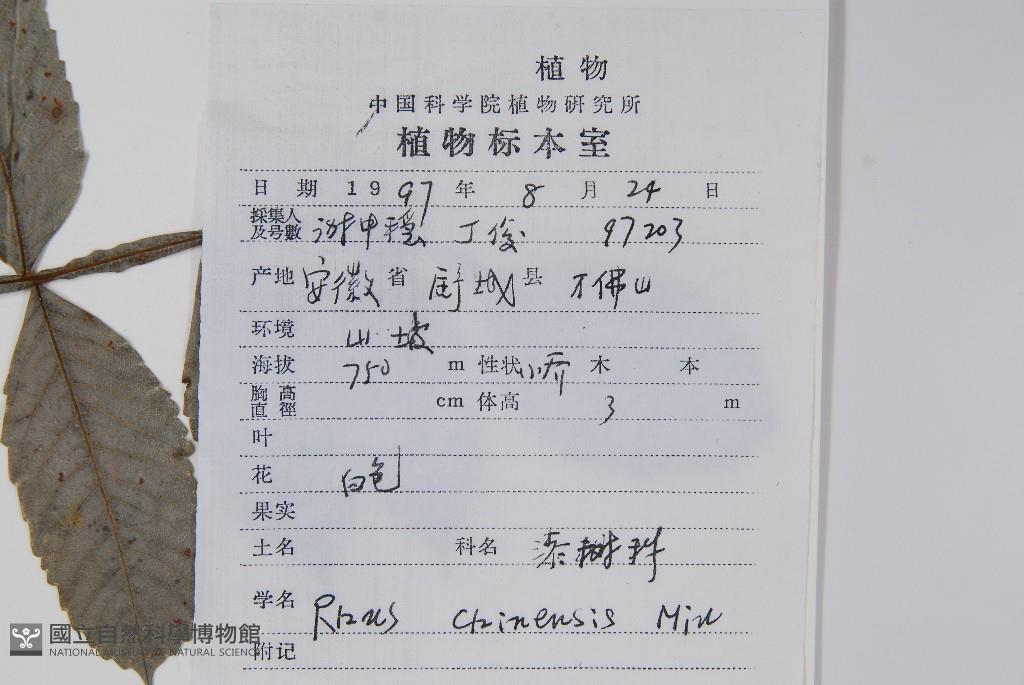 植物
中国科学院植物研究所
植物标本室
日期 1997年 8月 24日
採集人及号數 谢中稳 丁俊 97203
产地 安徽省 舒城县 万佛山
环境 山坡
海拔 750 m 性状 小乔木 本
胸高直徑 cm 体高 3 m
叶
花 白色
果实
土名 科名 漆树科
学名 Rhus chinensis Mill
附记
國立自然科學博物館
NATIONAL MUSEUM OF NATURAL SCIENCE